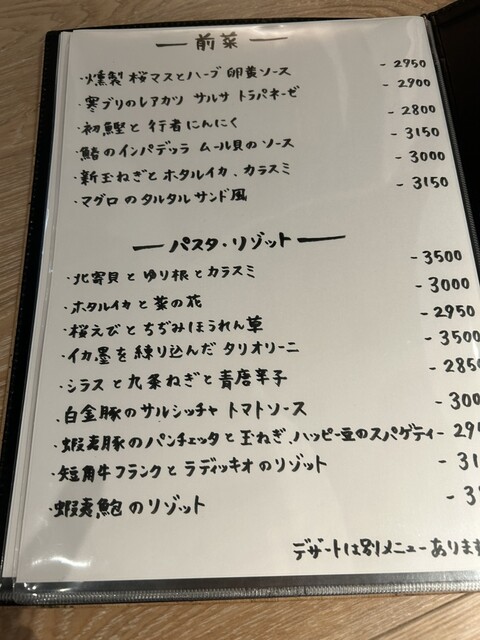 前菜
・燻製 桜マスとハーブ 卵黄ソース - 2950
・寒ブリのレアカツ サルサ トラパネーゼ - 2900
・初鰹と 行者にんにく - 2800
・鰆のインパデッラ ムール貝のソース - 3150
・新玉ねぎとホタルイカ、カラスミ - 3000
・マグロのタルタルサンド風 - 3150
パスタ・リゾット
・北寄貝とゆり根とカラスミ - 3500
・ホタルイカと菜の花 - 3000
・桜えびとちぢみほうれん草 - 2950
・イカ墨を練り込んだ タリオリーニ - 3500
・シラスと九条ねぎと青唐辛子 - 285
・白金豚のサルシッチャ トマトソース - 300
・蝦夷豚のパンチェッタと玉ねぎ、ハッピー豆のスパゲティ - 29
・短角牛フランクとラディッキオのリゾット - 31
・蝦夷鮑のリゾット - 3
デザートは別メニューあります